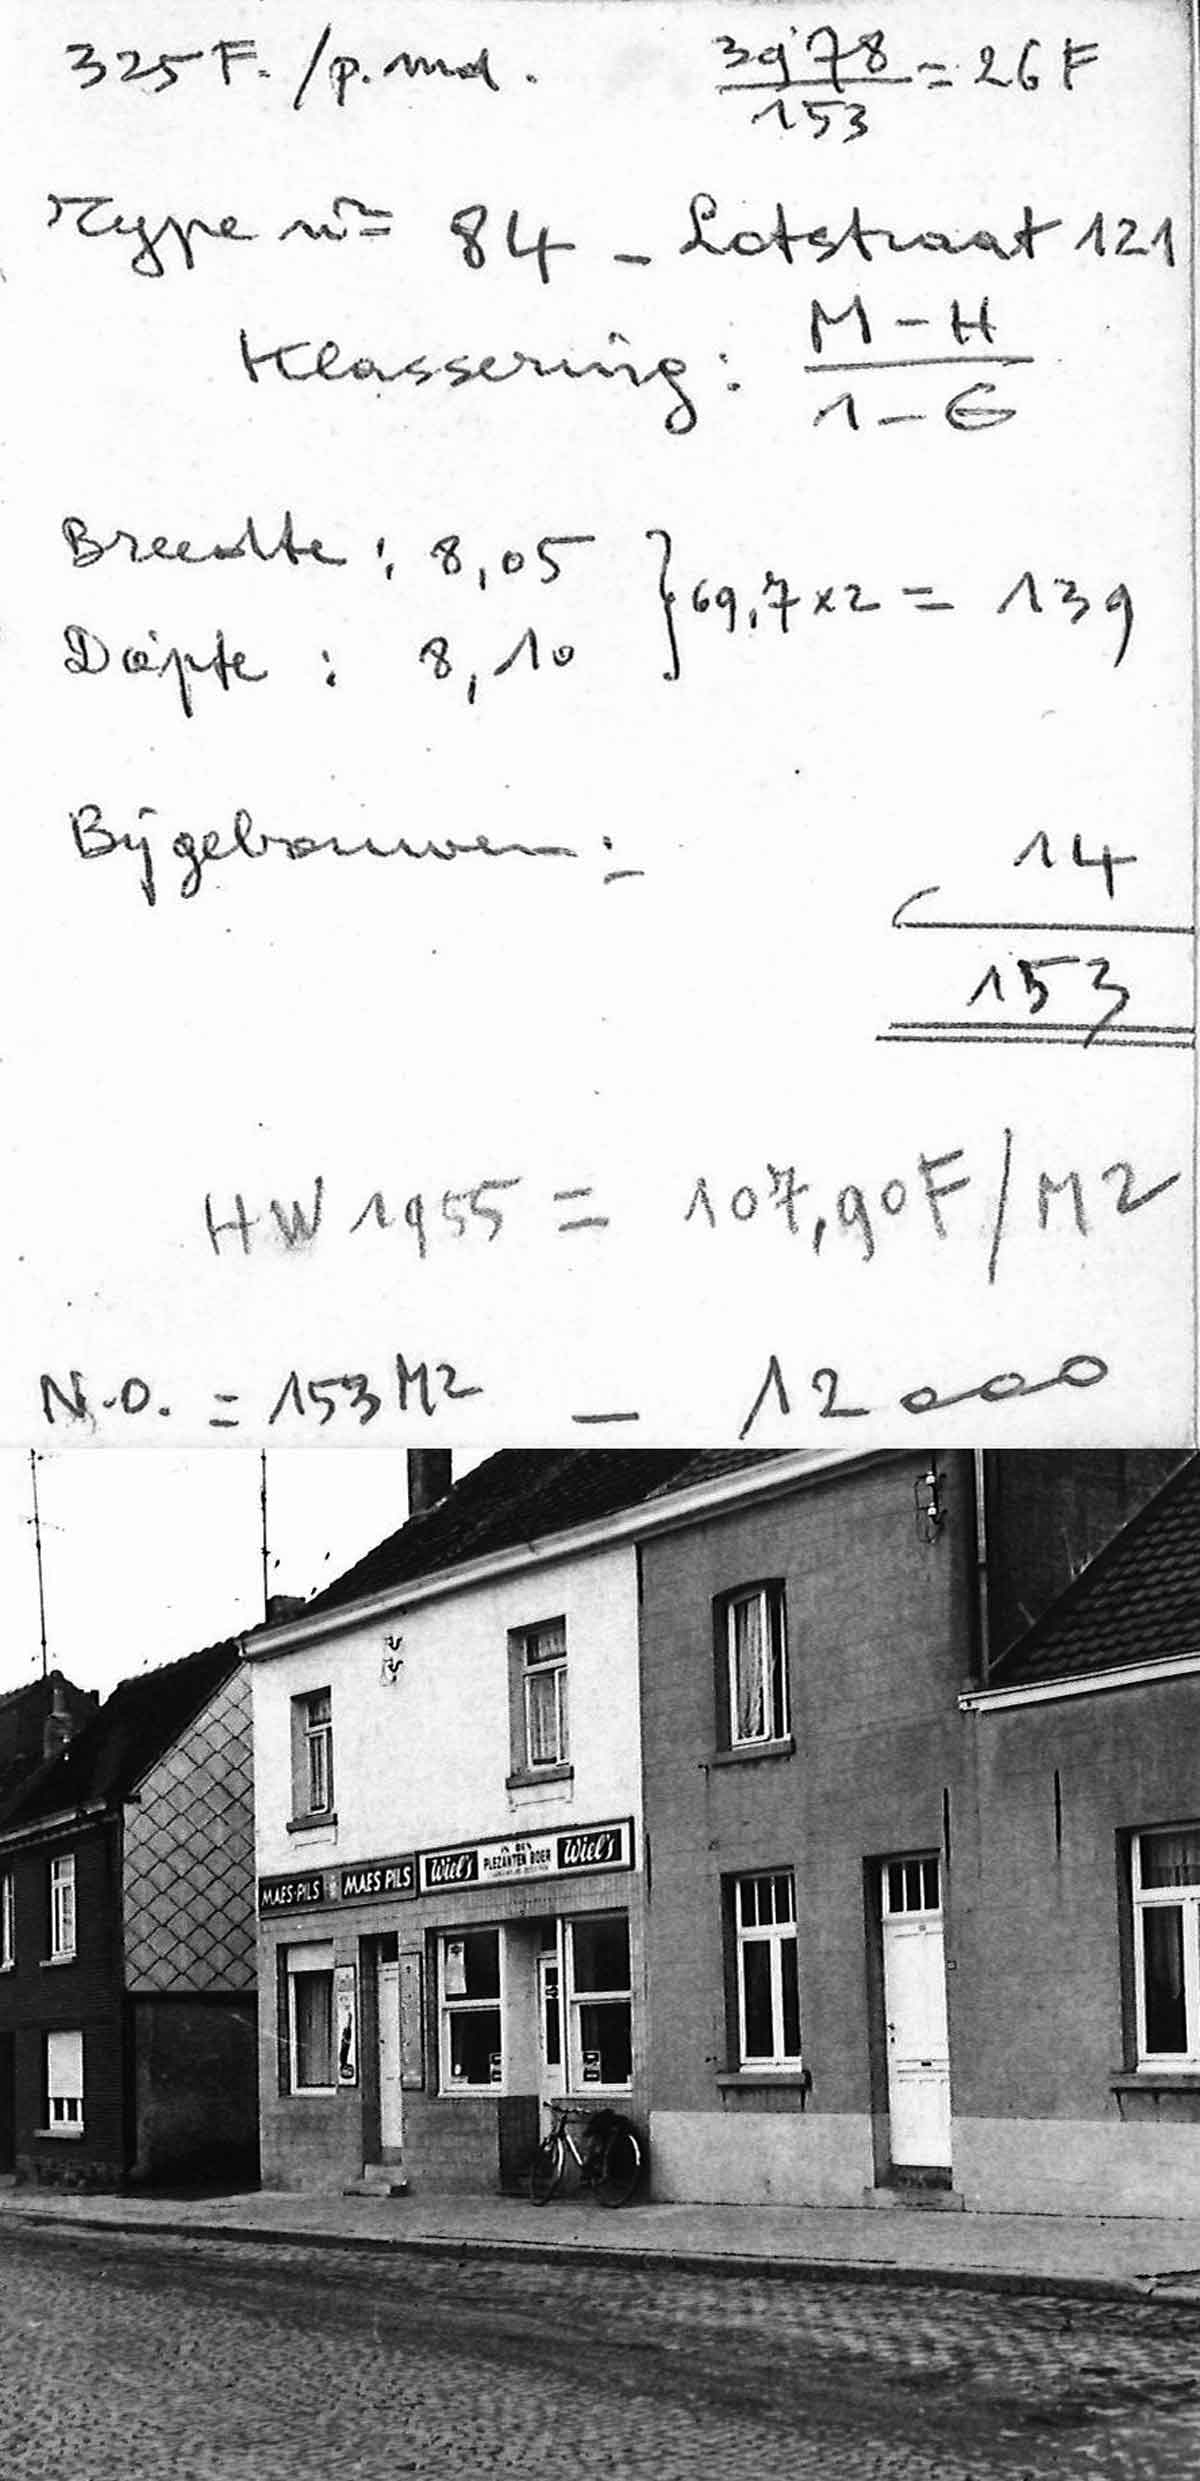 325 F. /p. md. 3978/153 = 26 F
Type nr= 84 - Lotstraat 121
Klassering : M-H/1-G
Breedte : 8,05
Diepte : 8,10 } 69,7 x 2 = 139
Bijgebouwen : 14
153
HW 1955 = 107,90 F/M2
N.O. = 153 M2 - 12000
MAES-PILS MAES PILS Wiel's IN DEN PLEZANTEN BOER Wiel's